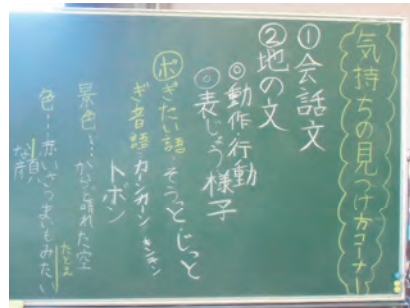 気持ちの見つけ方コーナー
①会話文
②地の文
◎動作行動
◎表じょう様子
ポぎたい語 そうっと じっと
ぎ音語・カンカーン キンキン
トボン
景色…からっと晴れた空
たとえ
色…赤いさつまいもみたい
な顔